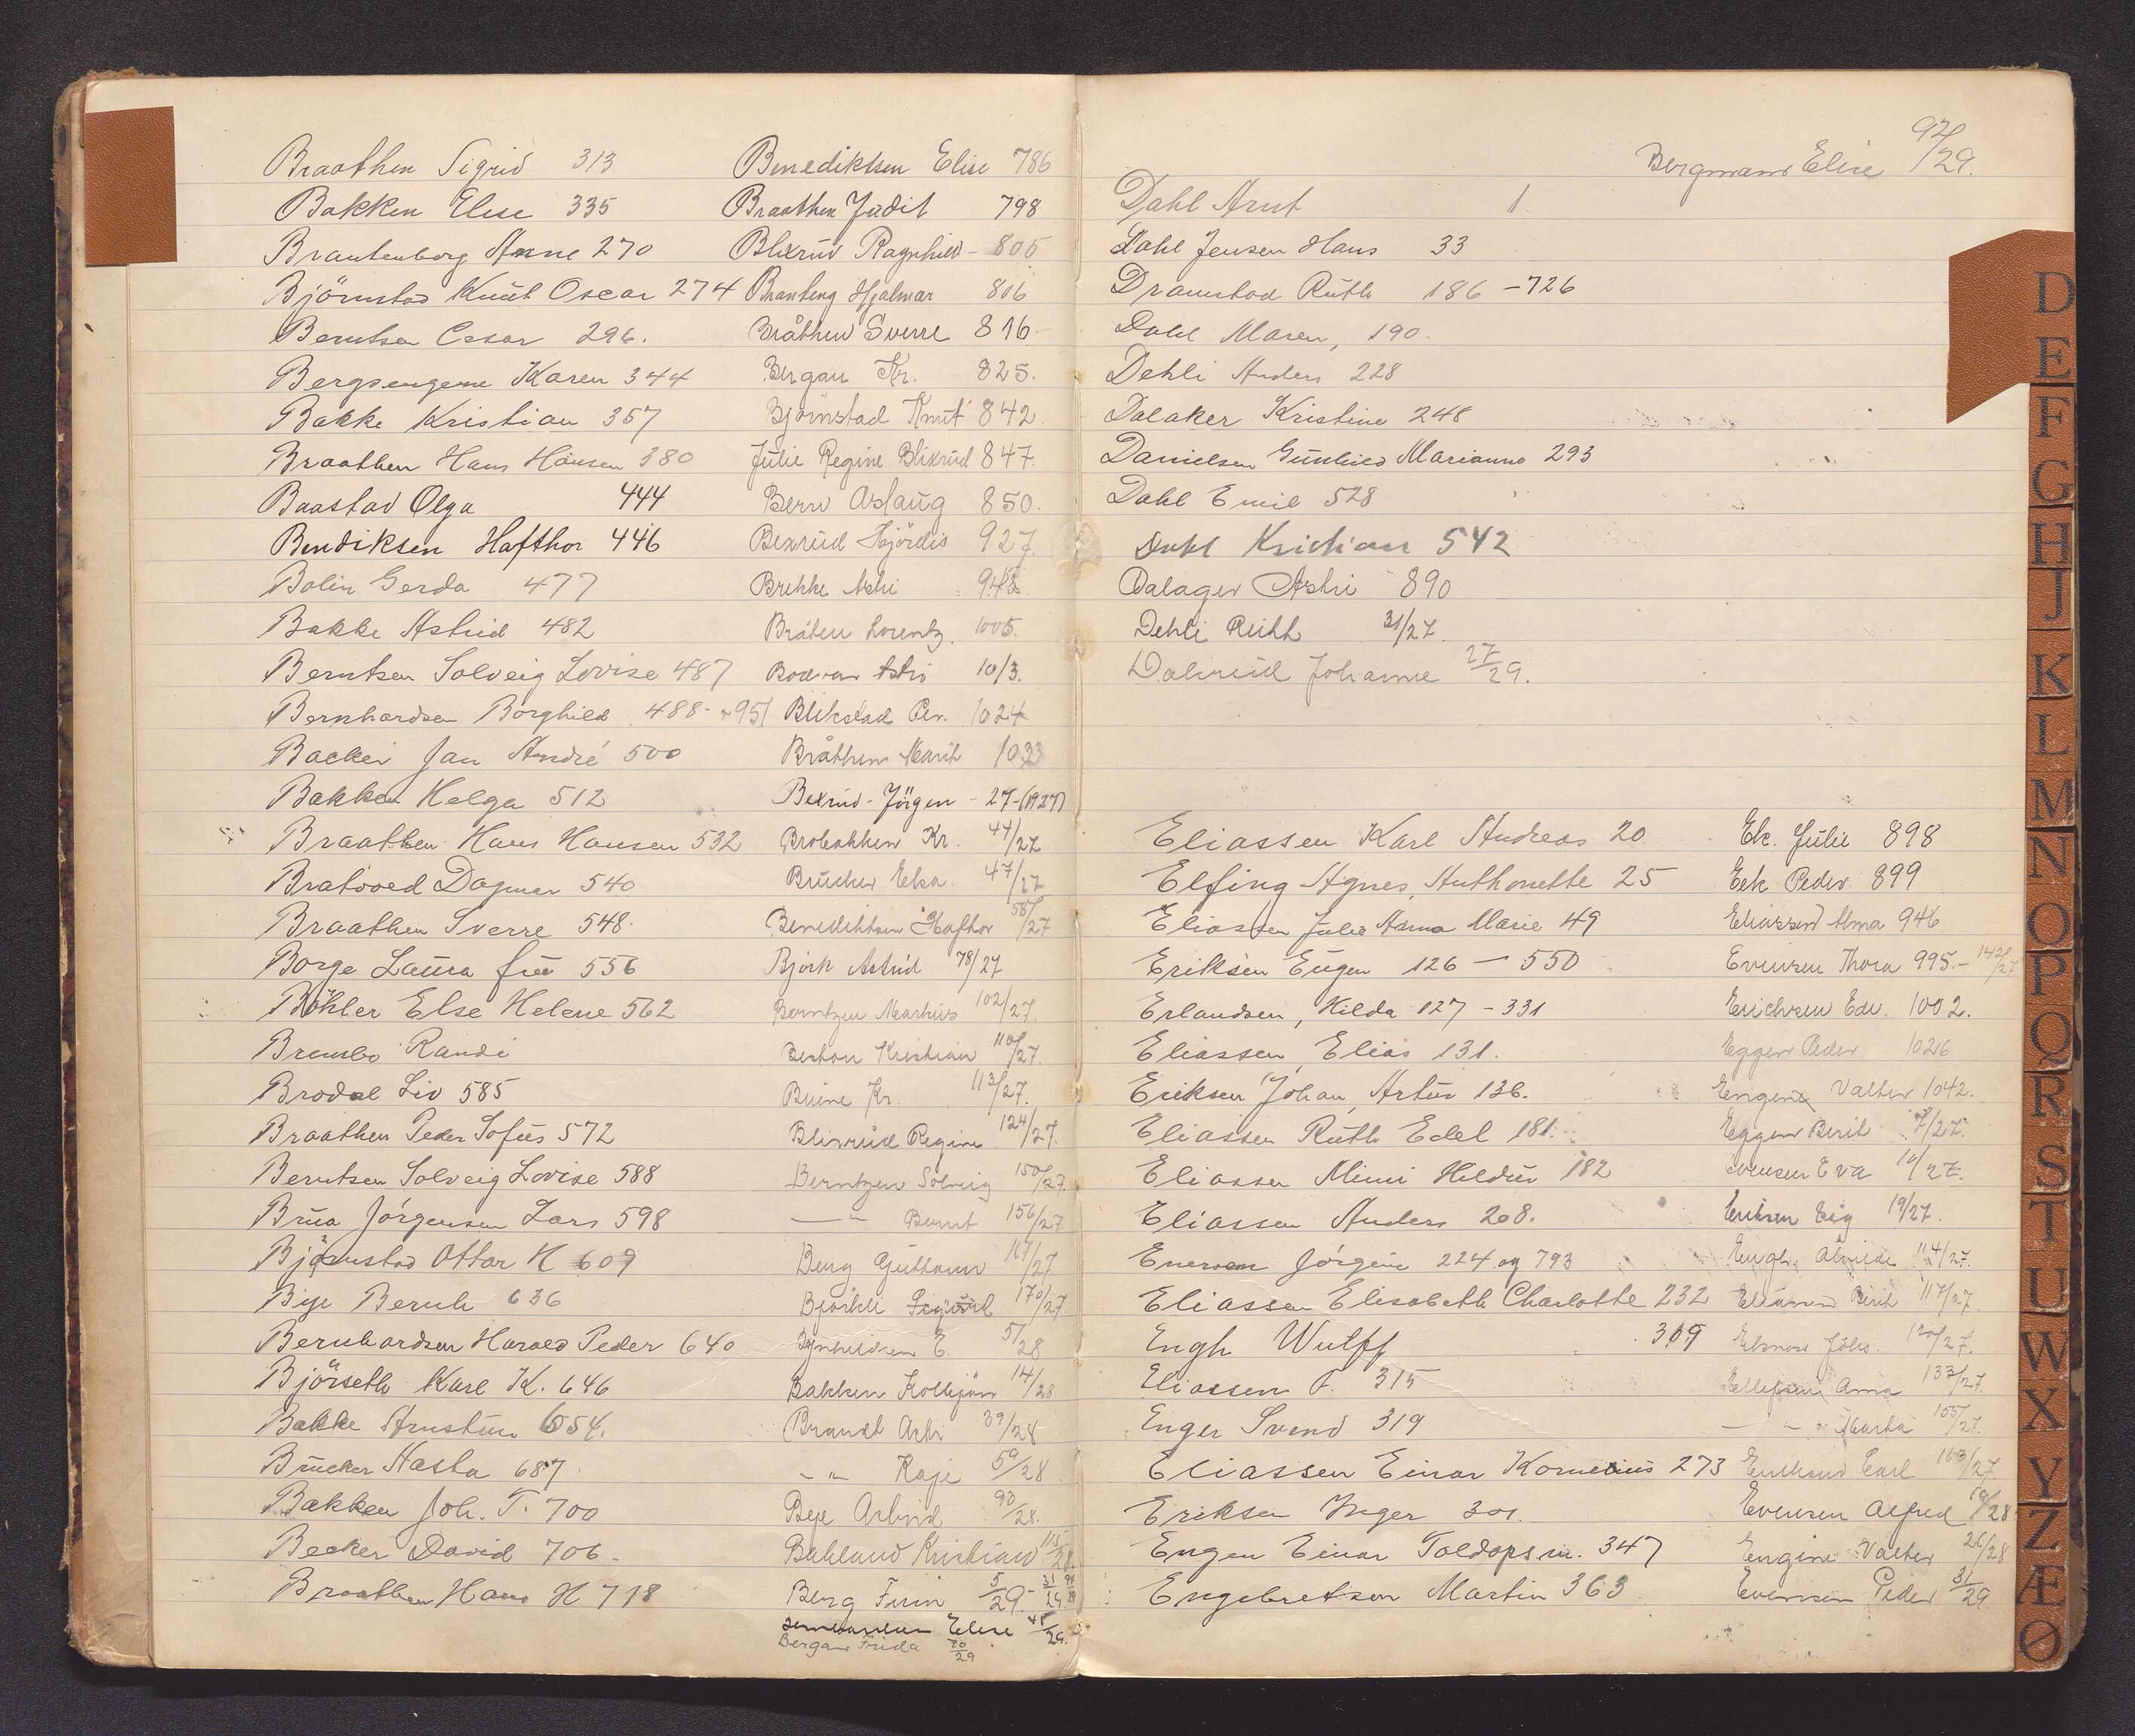 Braathen Sigrid 313
Bakken Elise 335
Brautenborg Anne 270
Björnstad Knut Oscar 274
Berntsen Cesar 296.
Bergsengene Karen 344
Bakke Kristian 357
Braathen Hans Hansen 380
Baastad Olga 444
Bendiksen Hafthor 446
Bolin Gerda 477
Bakke Astrid 482
Berntsen Solveig Lovise 487
Bernhardsen Borghild 488- 951
Backer Jan André 500
Bakken Helga 512
Braathen Hans Hansen 532
Bratvoed Dagmar 540
Braathen Sverre 548.
Borge Laura frü 556
Böhler Else Helene 562
Brembo Randi
Brodal Liv 585
Braathen Peder Sofus 572
Berntsen Solveig Lovise 588
Brua Jörgensen Lars 598
Björnstad Ottar K 609
Bije Beruh 636
Bernhardsen Harald Peder 640
Björseth Karl K. 646
Bakke Arnstein 654.
Brücker Hasta 687
Bakken Joh. T. 700
Becker David 706-
Braathen Hans H 718
Benediktsen Elise 786
Braathen Judit 798
Blixrud Ragnhild - 805
Branteng Hjalmar 806
Bråthen Sverre 816
Bergan Kr. 825.
Bjornstad Knut 842
Julie Regine Blixrud 847.
Berw Aslaug 850.
Bexrud Hjördis 927
Brekke Astri 943
Bråten Lorentz. 1005.
Astri 10/3.
Blikstad Per. 1024
Bråthen Marit 1033
Bexrud - Jörgen - 27-(1927)
Brobakken Kr. 44/27
Brücker Elsa. 47/27
Benedihtsen Hafthor 58/27
Björk Astrid 78/27
Berntzen Markus 102/27.
Kristian 110/27.
Buine Kr. 113/27.
Blixrud Regine 124/27.
Berntzen Solveig 150/27.
— " — Bernt 156/27
Berg Guttorm 167/27
Björkli Sigurd 170/27.
E. 5/28
Bakken Kolbjörn 14/28
Brandt Astri 39/28
- " - Kaje 59/28
Beje Arvid 93/28.
Bakland Kristian 115/28.
Berg Finn 5/29.- 31/29 94/29
Elise 45/29.
Bergan Frida 70/29
Bergmann Elise 92/29.
Dahl Arnt 1
Dahl Jensen Hans 33
Dramstad Ruth 186 - 726
Dahl Maren, 190.
Dehli Anders 228
Dalaker Kristine 248
Danielsen Gunhild Marianne 293
Dahl Emil 528
Dahl Kristian 542
Dalager Astri 890
Dehli Ruth 31/27.
Dalsrud Johanne 27/29.
Eliassen Karl Andreas 20
Elfing Agnes, Anthonette 25
Eliassen Julie Anna Marie 49
Eriksen Eugen 126 - 550
Erlandsen, Hilda 127 - 331
Eliassen, Elias 131.
Eriksen Johan, Artur 136.
Eliassen Ruth Edel 181.
Eliassen Mimi Hildur 182
Eliassen Anders 208.
Enersen Jörgine 224 og 793
Eliassen Elisabeth Charlotte 232
Engh Wulff 309
Eliassen P. 315
Enger Svend 319
Eliassen Einar Kornelius 273
Eriksen Inger 301.
Engen Einar Toldops.m. 347
Engebretsen Martin 363
Ek. Julie 898
Eek Peder 899
Eliassen Alma 946
Evensen Thora 995.- 142/27
Erichsen Edv. 1002.
Eggen Peder 1026
Engene Valter 1042.
Eggen Berit 7/27.
Evensen Eva 10/27.
Eriksen Eig 19/27.
Engh, Alvilde 114/27.
Eliassen Berit 117/27.
Johs. 120/27.
Ellefsen Anna 133/27.
— " — Marta 155/27.
Eriksen Earl 163/27
Evensen Alfred 19/28
Engene Valter 26/28
Evensen Peder 31/29.
D
E
F
G
H
J
K
L
M
N
O
P
Q
R
S
T
U
W
X
Y
Z
Æ
Ø